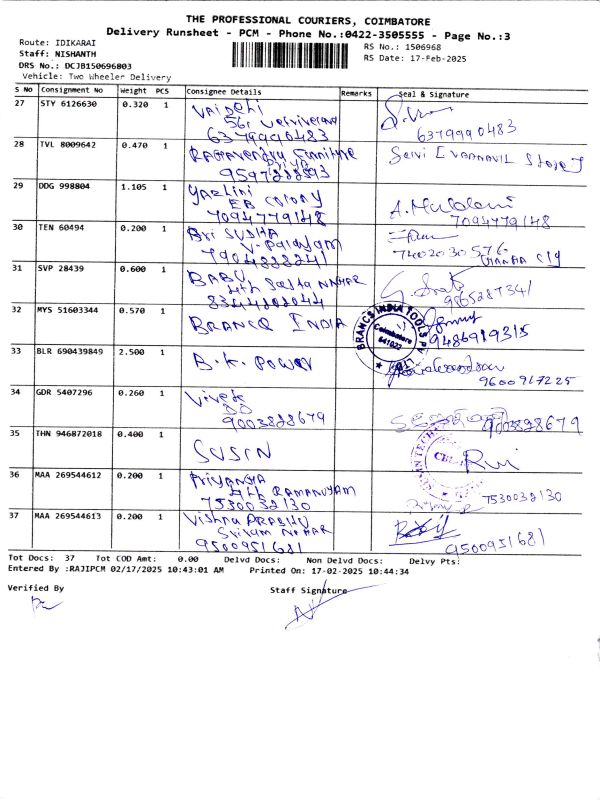 THE PROFESSIONAL COURIERS, COIMBATORE
Delivery Runsheet - PCM - Phone No.:0422-3505555 - Page No.:3
Route: IDIKARAI
RS No.: 1506968
Staff: NISHANTH
RS Date: 17-Feb-2025
DRS No.: DCJB150696803
Vehicle: Two Wheeler Delivery
S No Consignment No Weight PCS Consignee Details Remarks Seal & Signature
27 STY 6126630 0.320 1 VAIDehi
6379990483 6379990483
28 TVL 8009642 0.470 1 Ragavendra Furniture Selvi [VARNAVIL Store]
PRIYA
9597288893
29 DDG 998804 1.105 1 Yazlini
EB COLONY
7094779148 7094779148
30 TEN 60494 0.200 1 Bri SUSHA
V-Palayam 7402030576
7904888241
31 SVP 28439 0.600 1 BABU
4th Sastha NAHAR
8344202044 9865287341
32 MYS 51603344 0.570 1 BRANCQ INDIA BRANCS INDIA TOOLS PVT LTD
Coimbatore
641022
9486919315
33 BLR 690439849 2.500 1 B.K. Power
9600917225
34 GDR 5407296 0.260 1 Vivek
DD
9003828679 9003828679
35 THN 946872018 0.400 1 SUSIN
36 MAA 269544612 0.200 1 Priyanga
4th RAMANUJAM
7530032130 7530032130
37 MAA 269544613 0.200 1 Vishnu PRABHU
Sriram NAHAR
9500951681 9500951681
Tot Docs: 37 Tot COD Amt: 0.00 Delvd Docs: Non Delvd Docs: Delvy Pts:
Entered By :RAJIPCM 02/17/2025 10:43:01 AM Printed On: 17-02-2025 10:44:34
Verified By Staff Signature